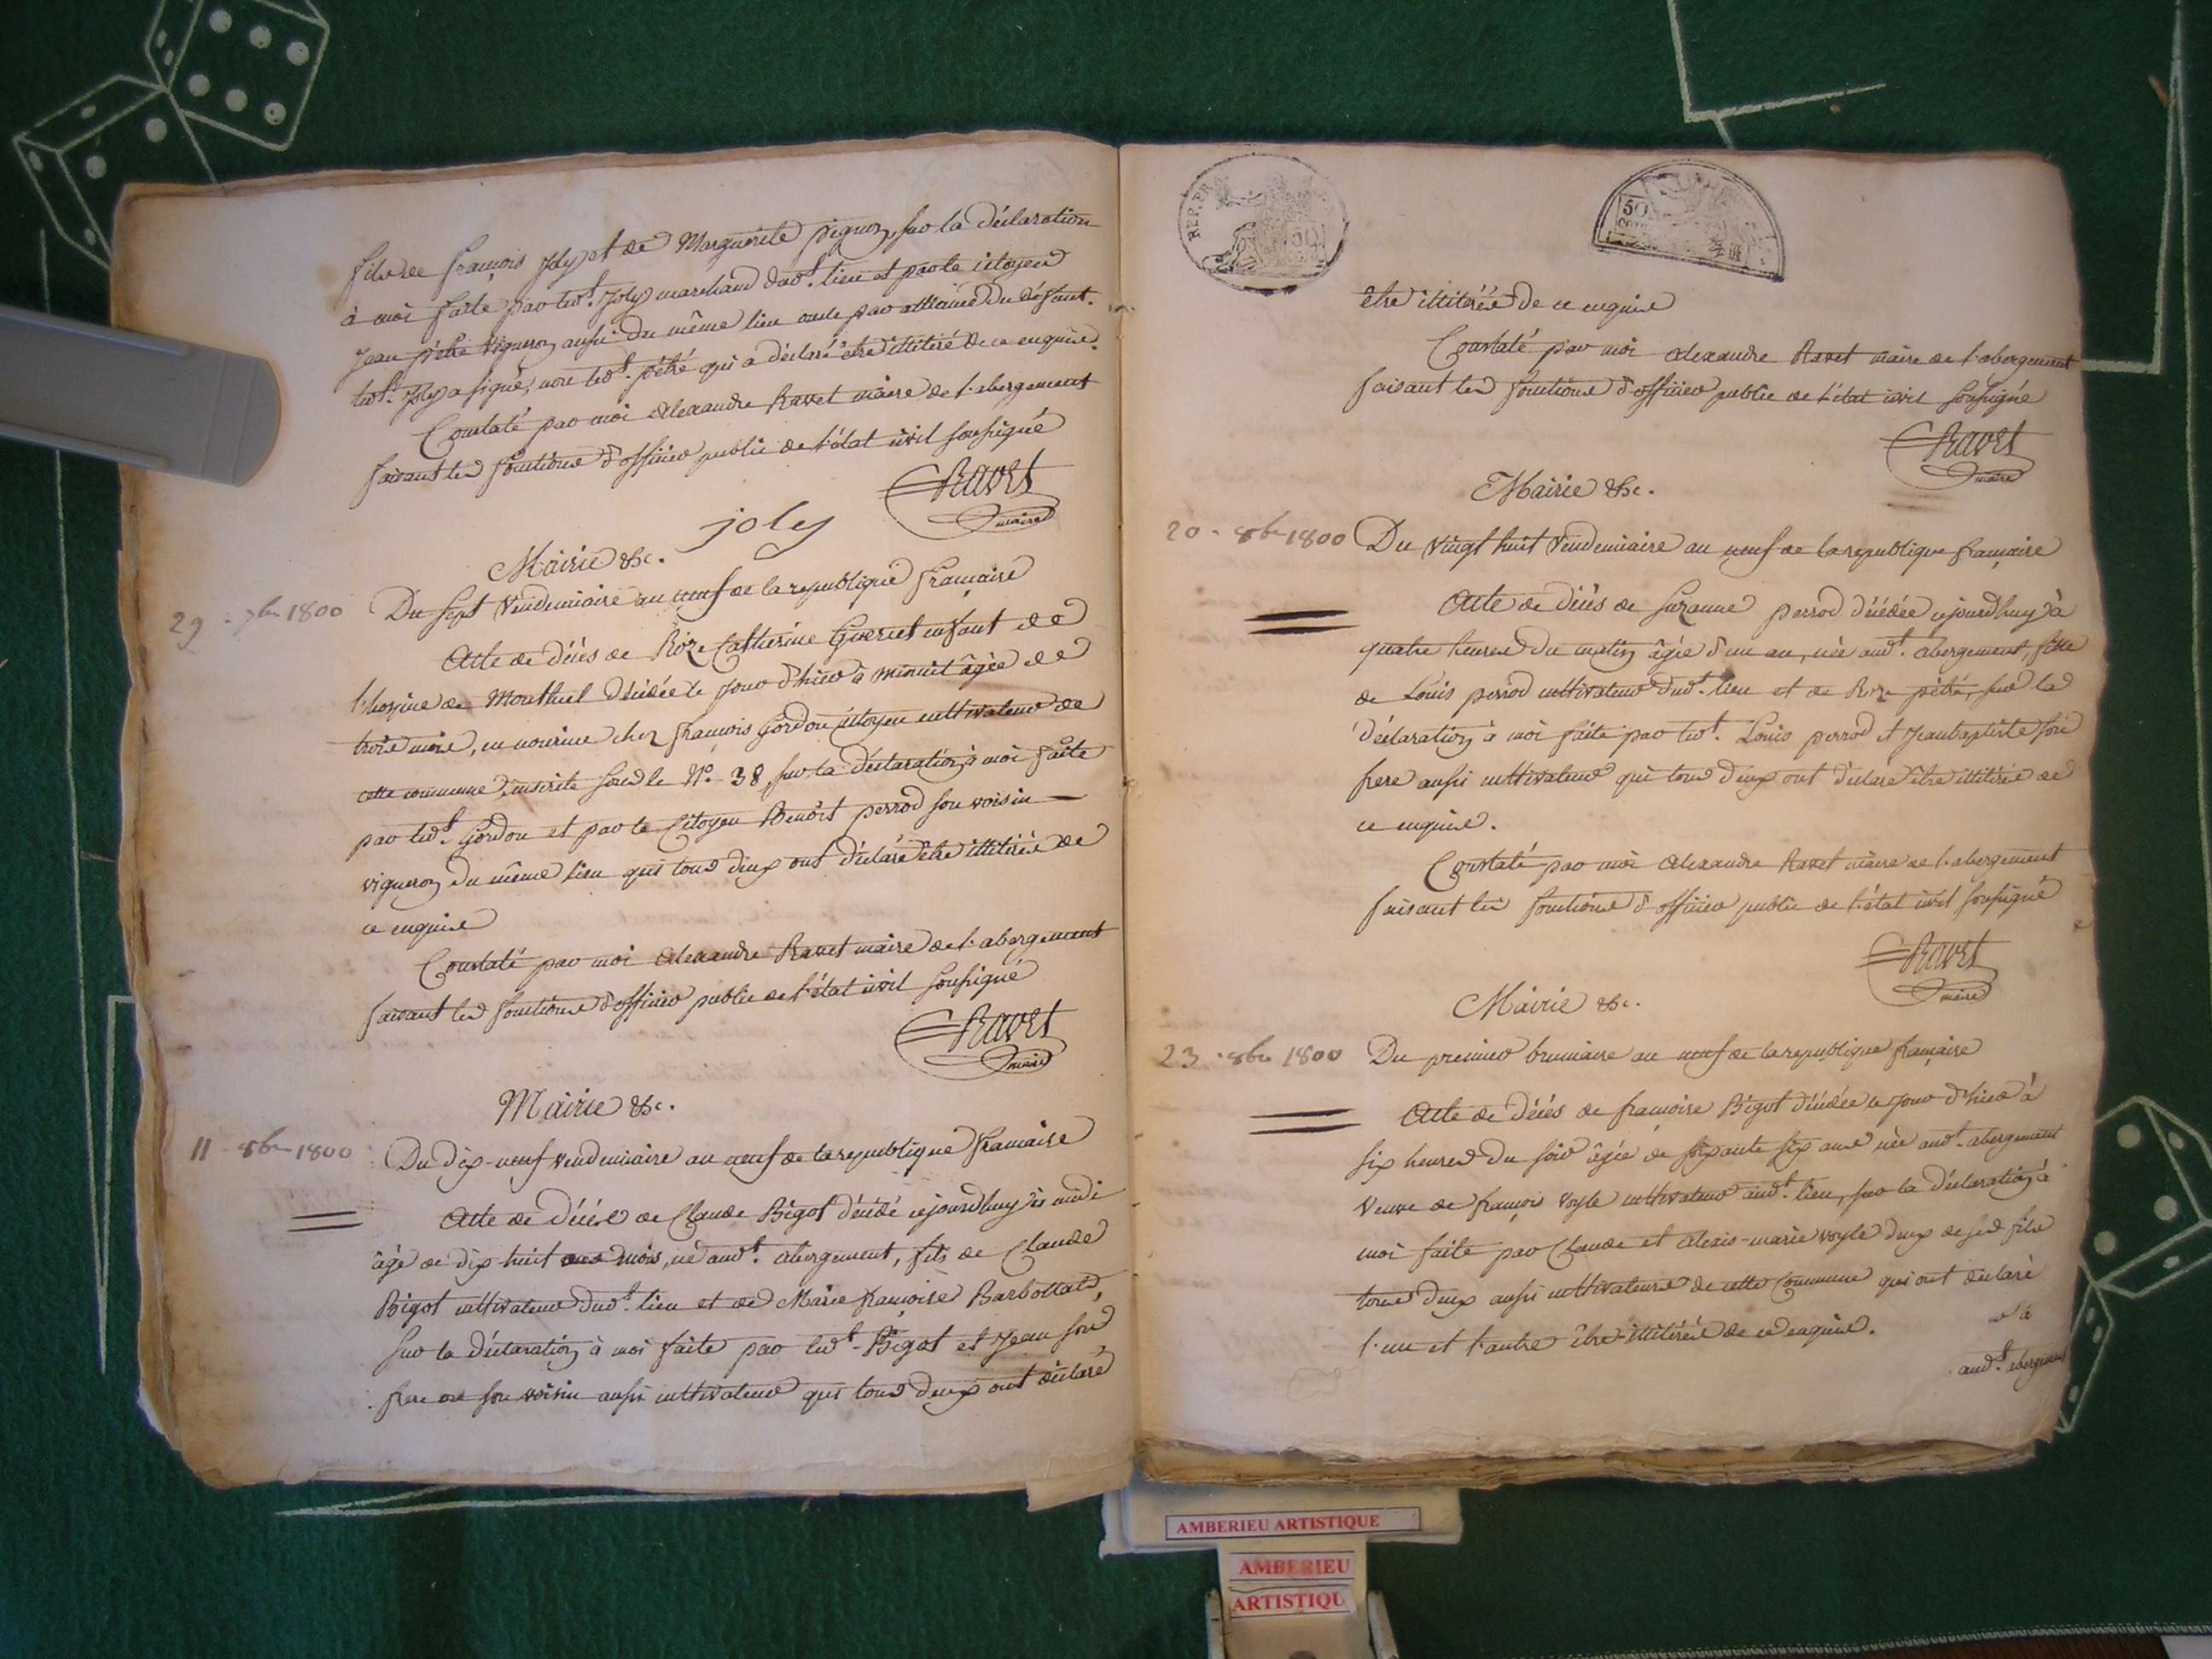 fils de françois Joly et de Marguerite pignon, sur la déclaration
à moi faite par led.t Joly marchand dud.t lieu et par le citoyen
Jean pétré vigneron aussi du même lieu oncle par alliance du défunt.
led.t Joly a signé, non led.t pétré qui a déclaré être illitéré de ce enquis.
Constaté par moi Alexandre Ravet maire de l'abergement
faisant les fonctions d'officier public de l'état civil soussigné
Ravet
maire
joly
Mairie &c.
29 - 7bre 1800
Du sept Vendemiaire an neuf de la republique française
Acte de décès de Roze Catherine enfant de
l'hospice de Montluel décédée le jour d'hier à minuit âgée de
trois mois, en nourrice chez françois Gordon citoyen cultivateur de
cette commune, inscrite sous le N.o 38, sur la déclaration à moi faite
par led.t Gordon et par le Citoyen Benoit perrod son voisin
vigneron du même lieu qui tous deux ont déclaré être illitérés de
ce enquis
Constaté par moi Alexandre Ravet maire de l'abergement
faisant les fonctions d'officier public de l'état civil soussigné
Ravet
maire
Mairie &c.
11 - 8bre 1800
Du dix-neuf vendemiaire an neuf de la republique française
Acte de décès de Claude Bigot décédé cejourdhuy à midi
âgé de dix-huit mois, né aud.t abergement, fils de Claude
Bigot cultivateur dud.t lieu et de Marie françoise Barbottat,
sur la déclaration à moi faite par led.t Bigot et Jean son
frere son voisin aussi cultivateur qui tous deux ont déclaré
REP. FRA
50
50
être illitérés de ce enquis
Constaté par moi Alexandre Ravet maire de l'abergement
faisant les fonctions d'officier public de l'état civil soussigné
Ravet
maire
Mairie &c.
20 - 8bre 1800
Du vingt huit Vendemiaire an neuf de la republique française
Acte de décès de Suzanne perrod décédée cejourdhuy à
quatre heures du matin âgée d'un an, née aud.t abergement, fille
de Louis perrod cultivateur dud.t lieu et de Roze pétré, sur la
déclaration à moi faite par led.t Louis perrod et Jeanbaptiste son
frere aussi cultivateur qui tous deux ont déclaré être illitérés de
ce enquis.
Constaté par moi Alexandre Ravet maire de l'abergement
faisant les fonctions d'officier public de l'état civil soussigné
Ravet
maire
Mairie &c.
23 - 8bre 1800
Du premier brumaire an neuf de la republique française
Acte de décès de françoise Bigot décédée le jour d'hier à
six heures du soir âgée de soixante six ans née aud.t abergement
veuve de françois voyle cultivateur aud.t lieu, sur la déclaration à
moi faite par Claude et Alexis-marie voyle deux de ses fils
tous deux aussi cultivateurs de cette Commune qui ont déclaré
l'un et l'autre être illitérés de ce enquis.
aud.t abergement
AMBERIEU ARTISTIQUE
AMBERIEU
ARTISTIQU